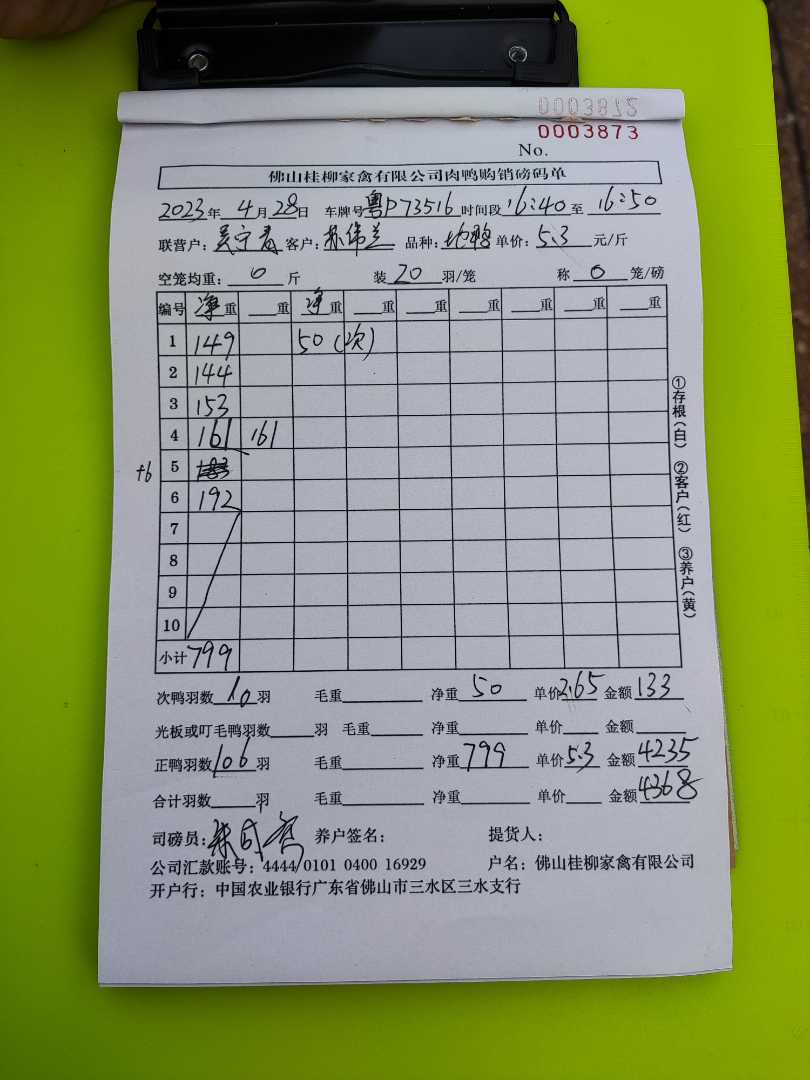 0003872
0003873
No.
佛山桂柳家禽有限公司肉鸭购销磅码单
2023年 4月 28日 车牌号粤P73516时间段16:40至 16:50
联营户: 吴宁青 客户: 林伟兰 品种: 地鸭 单价: 5.3 元/斤
空笼均重: 0 斤 装 20 羽/笼 称 0 笼/磅
编号 净重 重 净重 重 重 重 重 重 重
1 149 50 (次)
2 144
3 153
4 161 161
+6 5 183
6 192
7
8
9
10
小计 799
①存根(白) ②客户(红) ③养户(黄)
次鸭羽数 10 羽 毛重 净重 50 单价2.65 金额 133
光板或叮毛鸭羽数 羽 毛重 净重 单价 金额
正鸭羽数 106 羽 毛重 净重 799 单价5.3 金额 4235
合计羽数 羽 毛重 净重 单价 金额 4368
司磅员: 养户签名: 提货人:
公司汇款账号: 4444 0101 0400 16929 户名: 佛山桂柳家禽有限公司
开户行: 中国农业银行广东省佛山市三水区三水支行